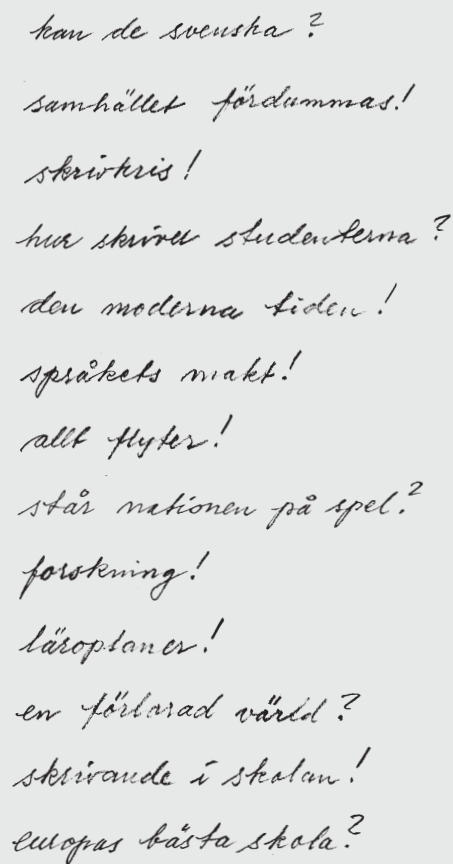 kan de svenska?
samhället fördummas!
skrivkris!
hur skriver studenterna?
den moderna tiden!
språkets makt!
allt flyter!
står nationen på spel?
forskning!
läroplaner!
en förlorad värld?
skrivande i skolan!
europas bästa skola?